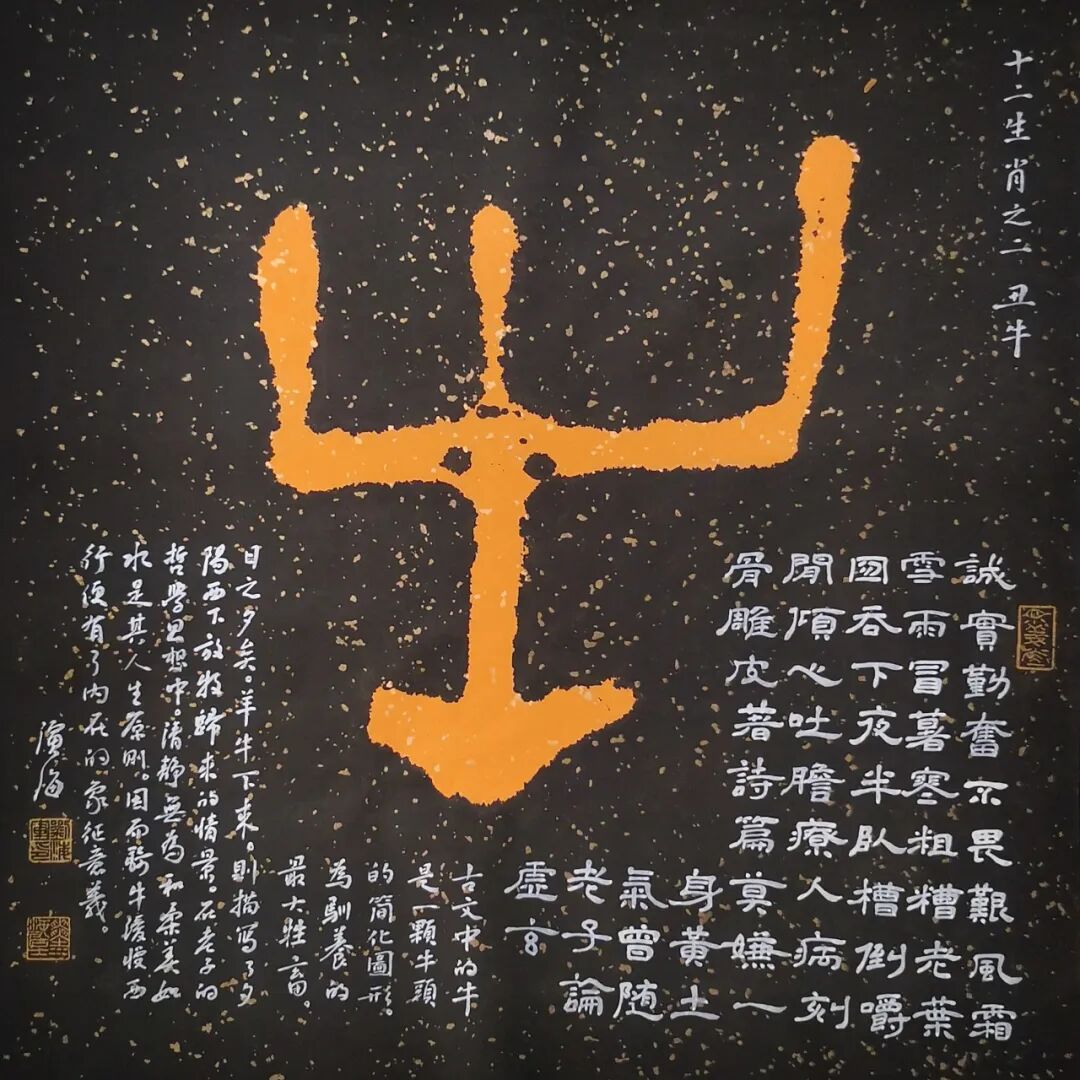 十二生肖之二 丑牛
牛
誠實勤奮不畏艱風霜
雪雨冒暑寒粗糟老葉
囫吞下夜半臥槽倒嚼
閒傾心吐膽療人病刻
骨雕皮著詩篇莫嫌一
身黃土
氣曾随
老子論
虛言
古文中的牛
是一顆牛頭
的简化圖形。
為馴養的
最大牲畜。
日之夕矣。羊牛下来。則描写了夕
陽西下放牧歸来的情景。在老子的
哲學思想中清靜無為和柔美如
水是其人生原則。因而騎牛緩慢西
行便有了内在的象征意義。